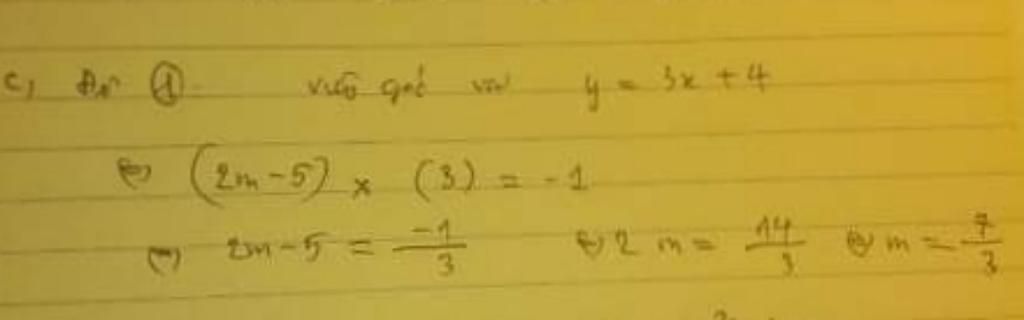 c, Để ① vuông góc với y = 3x + 4
⇔ (2m - 5) × (3) = -1
⇔ 2m - 5 = -1/3 ⇔ 2m = 14/3 ⇔ m = 7/3